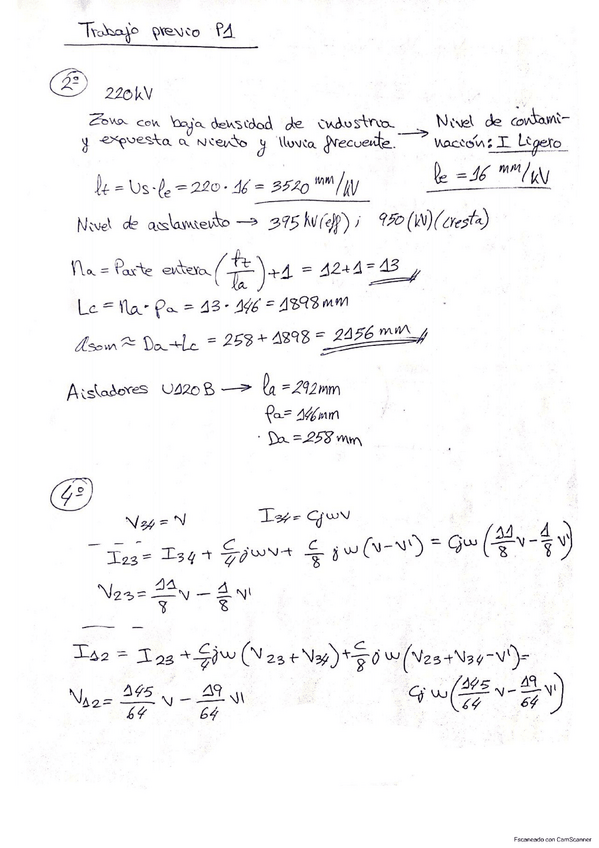 Trabajo previo P1
2º
220kV
Zona con baja densidad de industria
y expuesta a viento y lluvia frecuente. → Nivel de contami-
nación: I Ligero
le = 16 mm/kV
lt = Us·le = 220·16 = 3520 mm/kV
Nivel de aislamiento → 395 kV(eff) ; 950 (kV)(cresta)
Na = Parte entera (lt/la) + 1 = 12+1 = 13
Lc = Na·Pa = 13·146 = 1898 mm
dsom ≈ Da+Lc = 258 + 1898 = 2156 mm
Aisladores U120B → la = 292mm
Pa = 146mm
Da = 258mm
4º
V34 = V I34 = Cjωv
I23 = I34 + C/4 jωv + C/8 jω(v-v') = Cjω(11/8 v - 1/8 v')
V23 = 11/8 v - 1/8 v'
I12 = I23 + C/4 jω(V23+V34) + C/8 jω(V23+V34-V') =
V12 = 145/64 v - 19/64 v' Cjω(145/64 v - 19/64 v')
Escaneado con CamScanner